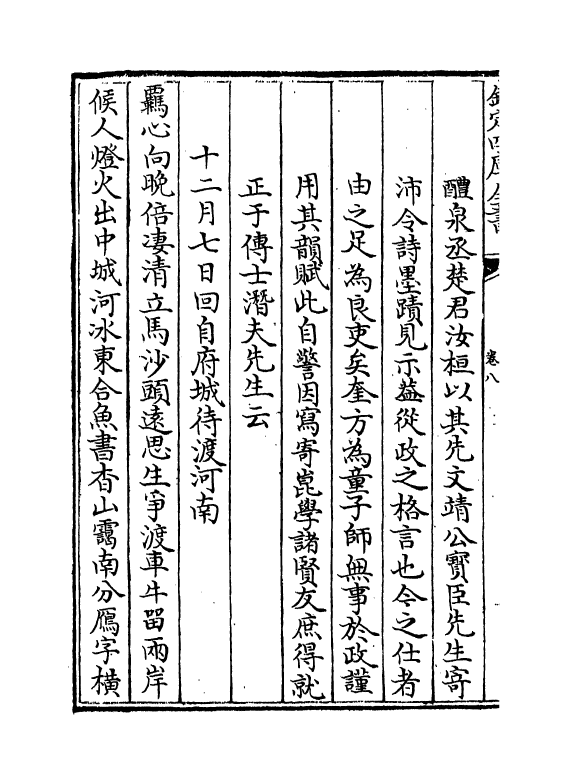 欽定四庫全書
卷八
醴泉丞楚君汝桓以其先文靖公寳臣先生寄
沛令詩墨蹟見示葢從政之格言也今之仕者
由之足為良吏矣奎方為童子師無事於政謹
用其韻賦此自警因寫寄崑學諸賢友庶得就
正于傅士潛夫先生云
十二月七日回自府城待渡河南
覊心向晚倍凄清立馬沙頭遠思生爭渡車牛留兩岸
候人燈火出中城河冰東合魚書杳山靄南分鴈字橫